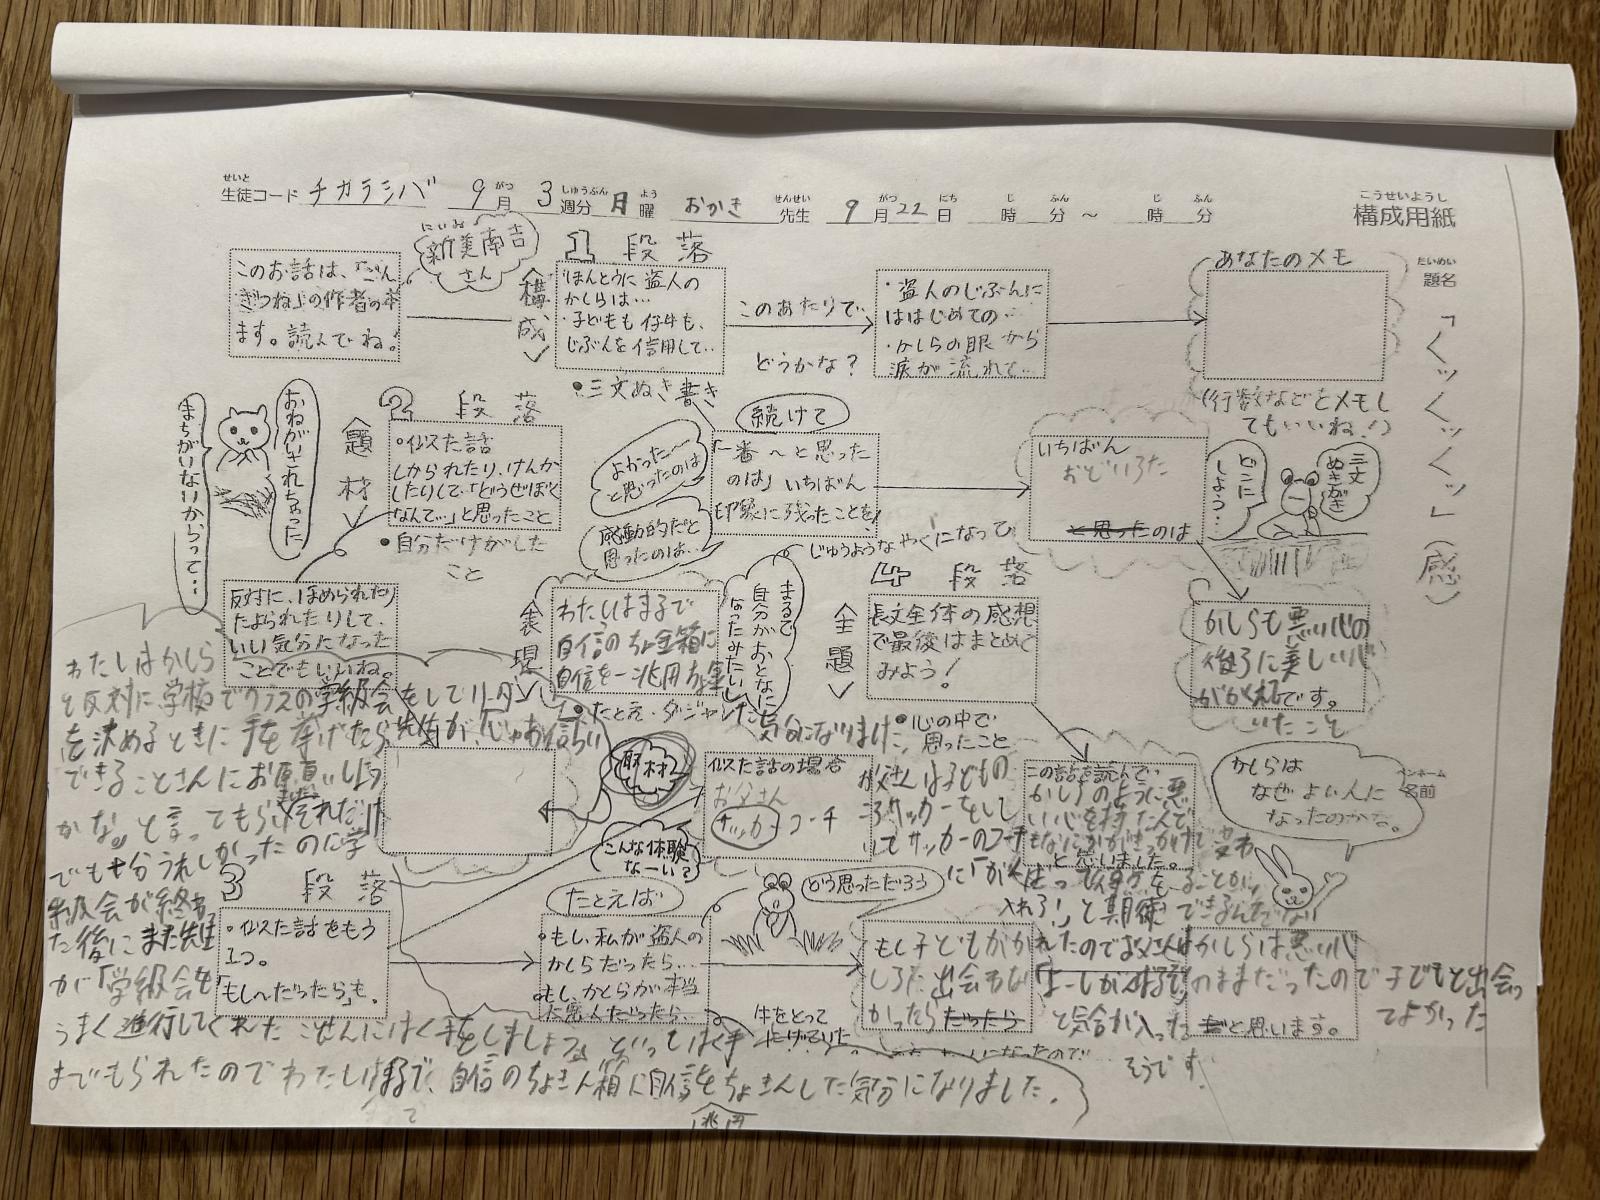 せいと がつ しゅうぶん よう せんせい がつ にち じ ふん じ ふん こうせいようし
生徒コード チカラシバ 9月 3週分 月曜 おかき 先生 9月22日 時 分 ～ 時 分 構成用紙
だいめい
題名
「くッくッくッ」(感)
にいみ
新美南吉
さん
このお話は、「ごん
ぎつね」の作者の本
ます。読んでね!
1 段落
〈構成〉
・ほんとうに盗人の
かしらは…
・子どもも仔牛も、
じぶんを信用して…
・三文ぬき書き
このあたりで…
どうかな?
・盗人のじぶんに
ははじめての…
・かしらの眼から
涙が流れて…
あなたのメモ
(行数などをメモし
てもいいね!)
おねがいされちゃった
まちがいないからって…
2 段落
〈題材〉
・似た話
しかられたり、けんか
したりして、「どうせぼく
なんて…」と思ったこと
・自分だけがした
こと
よかった〜
と思ったのは
感動的だと
思ったのは…
続けて
「一番〜と思った
のは」いちばん
印象に残ったことを!
いちばん
おどろいた
と思ったのは
どこに
しよう…
三文
ぬきがき
反対に、ほめられたり
たよられたりして、
いい気分になった
ことでもいいね。
〈表現〉
わたしはまるで
自信のちょ金箱に
自信を一兆円ちょ金
・たとえ・ダジャレ
まるで
自分がおとなに
なったみたい
じゅうようなやくになって
気分になりました
4 段落
〈主題〉
長文全体の感想
で最後はまとめて
みよう!
・心の中で
思ったこと
かしらも悪い心の
後ろに美しい心
がかくれです。
いたこそ
わたしはかしら
と反対に学校でクラスの学級会をしてリーダー
を決めるときに手を挙げたら先生が、「じゃお
できることさんにお願いしよう
かな。」と言ってもらえそれだけ
でも十分うれしかったのに学
級会が終わっ
た後にまた先生
が「学級会を
うまく進行してくれた ごせんにはく手をしましょう」といってはく手
までもられたのでわたしはまるで、自信のちょきん箱に自信をちょきんした気分になりました。
一兆円
取材
こんな体験
なーい?
似た話の場合
お父さん
サッカーコーチ
お父さんは子どもの
ころサッカーをして
いてサッカーのコーチ
この話を読んで…
かしらのように悪
い心を持った人で
もなにかがきっかけで変わ
ることが
できるんだな
と思いました。
かしらは
なぜよい人に
なったのかな。
ペンネーム
名前
3 段落
・似た話をもう
1つ。
「もし〜だったら」も。
たとえば
・もし、私が盗人の
かしらだったら…
・もし、かしらが本当
に悪人だったら…
どう思っただろう
入れろ!」と期待
もし子どもがか
しらに出会わな
かったら だったら
かしらは悪い心
のままだったので子どもと出会っ
てよかった
だと思います。
と気合が入った
そうです。